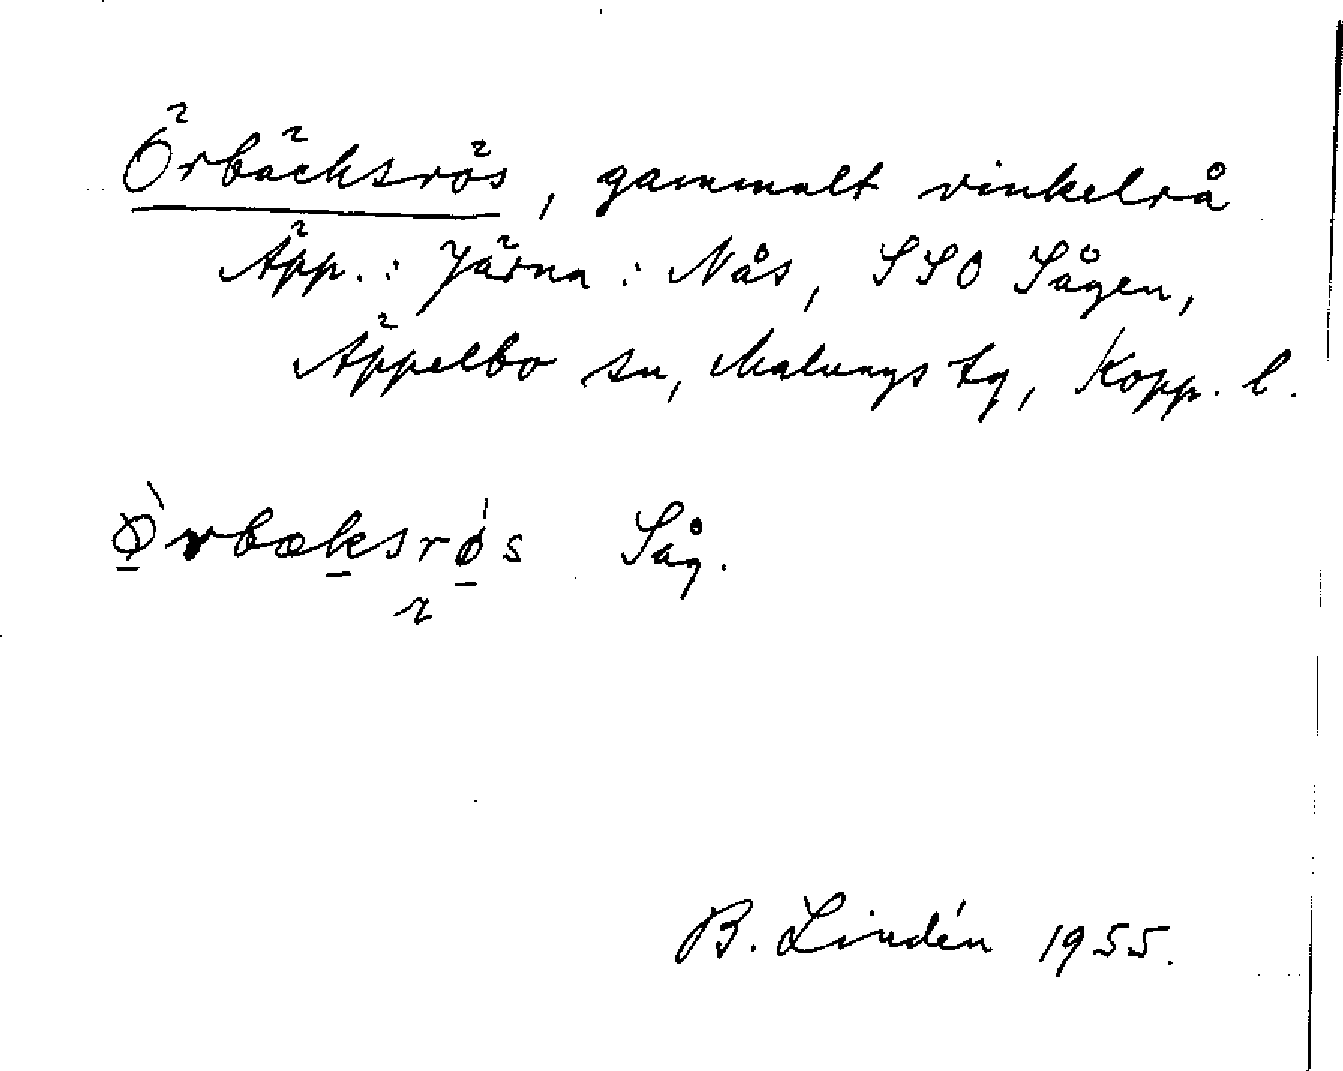 Örbäcksrös, gammalt vinkelrå
Äpp.: Järna: Nås, SSO Sågen,
Äppelbo sn, Malungs tg, Kopp. l.
Ø̀rbæksrǿs Såg.
B. Lindén 1955.